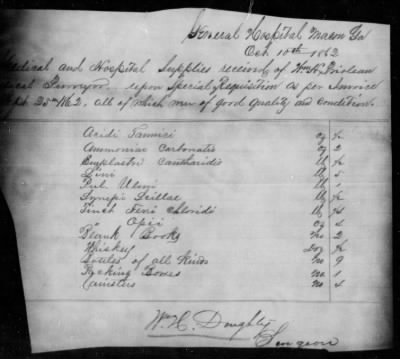 General Hospital Macon Ga
Oct 10th 1862
Medical and Hospital Supplies received of Wm H. Prioleau
Medical Purveyor upon Special Requisition as per Invoice
Sept 25th 1862, all of which were of good quality and condition.
Acidi Tannici oz
Ammoniae Carbonatis oz 2
Emplastri Cantharidis lb
Lini lb 5
Pulv Ulmi lb 1
Syrupi Scillae lb
Tinct Ferri Chloridi lb
" Opii oz 4
Blank Books no 2
Whiskey Doz
Bottles of all kinds no 9
Packing Boxes no 1
Canisters no 4
Wm H. Doughty
Surgeon